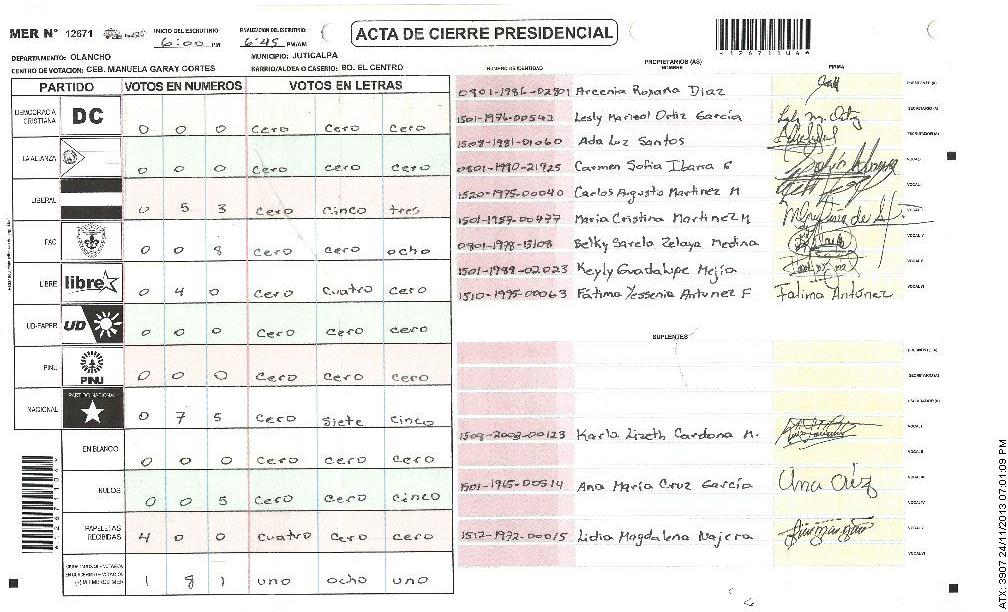 MER N° 12671
INICIO DEL ESCRUTINIO
6:00 PM
FINALIZACION DEL ESCRUTINIO
6:45 PM/AM
ACTA DE CIERRE PRESIDENCIAL
DEPARTAMENTO: OLANCHO
MUNICIPIO: JUTICALPA
CENTRO DE VOTACION: CEB. MANUELA GARAY CORTES
BARRIO/ALDEA O CASERIO: BO. EL CENTRO
PARTIDO VOTOS EN NUMEROS VOTOS EN LETRAS
DEMOCRACIA CRISTIANA DC 0 0 0 cero cero cero
LA ALIANZA 0 0 0 cero cero cero
LIBERAL 0 5 3 cero cinco tres
FAC 0 0 8 cero cero ocho
LIBRE libre 0 4 0 cero cuatro cero
UD-FAPER UD 0 0 0 cero cero cero
PINU PINU 0 0 0 cero cero cero
NACIONAL PARTIDO NACIONAL 0 7 5 cero siete cinco
EN BLANCO 0 0 0 cero cero cero
NULOS 0 0 5 cero cero cinco
PAPELETAS RECIBIDAS 4 0 0 cuatro cero cero
1 8 1 uno ocho uno
NUMERO DE IDENTIDAD
PROPIETARIOS (AS)
NOMBRE
FIRMA
0801-1986-02801 Arcenia Roxana Diaz
1501-1976-00542 Lesly Marisol Ortiz García
1508-1981-01060 Ada Luz Santos
0801-1990-21925 Carmen Sofia Ibarra
1520-1975-00040 Carlos Augusto Martinez M
1501-1957-00477 Maria Cristina Martinez M
0801-1978-13108 Belky Sarela Zelaya Medina
1501-1989-02023 Keyly Guadalupe Mejía
1510-1995-00063 Fátima Yessenia Antunez F Fatima Antúnez
SUPLENTES
1509-2003-00123 Karla Lizeth Cardona M.
1501-1965-00514 Ana María Cruz García
1512-1972-00015 Lidia Magdalena Najera
ATX: 3907 24/11/2013 07:01:09 PM